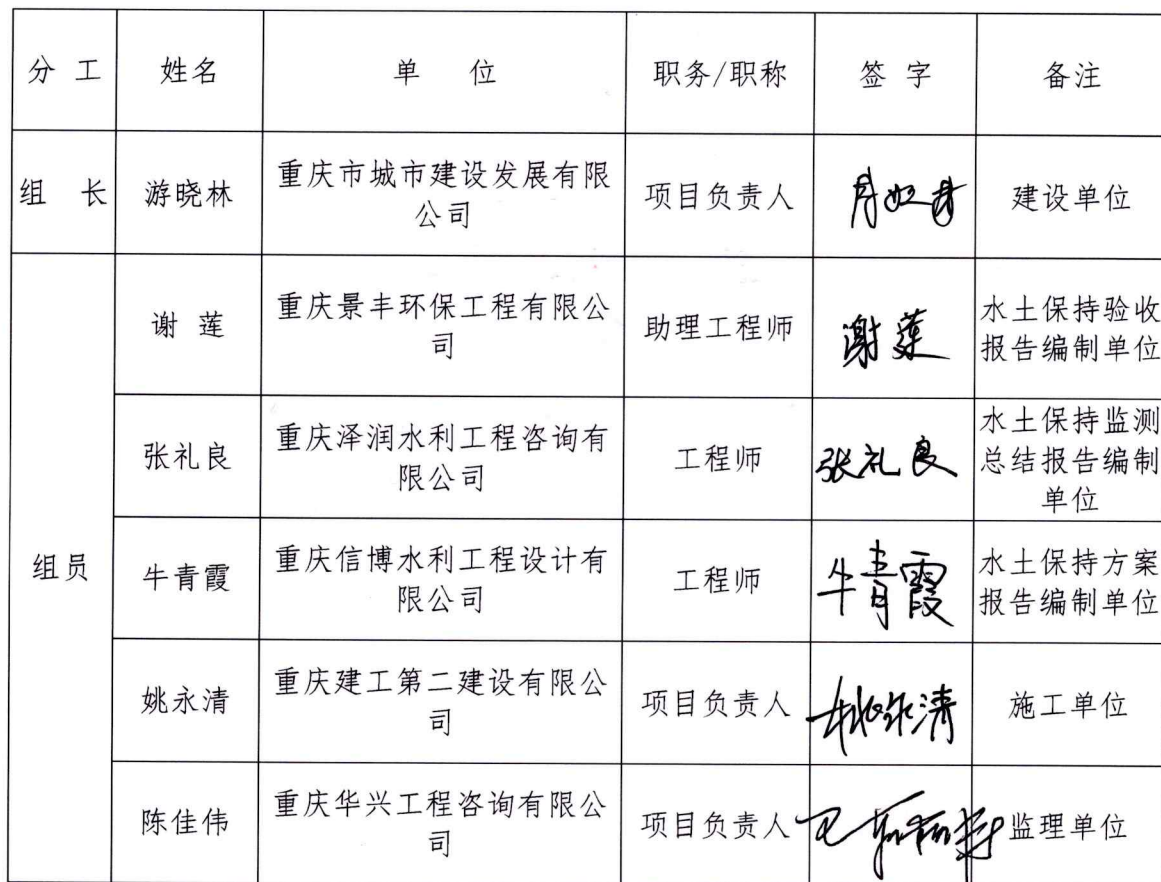 分 工 姓名 单 位 职务/职称 签 字 备注
组 长 游晓林 重庆市城市建设发展有限 项目负责人 建设单位
公司
谢 莲 重庆景丰环保工程有限公 助理工程师 谢莲 水土保持验收
司 报告编制单位
张礼良 重庆泽润水利工程咨询有 工程师 张礼良 水土保持监测
限公司 总结报告编制
单位
组员 牛青霞 重庆信博水利工程设计有 工程师 牛青霞 水土保持方案
限公司 报告编制单位
姚永清 重庆建工第二建设有限公 项目负责人 姚永清 施工单位
司
陈佳伟 重庆华兴工程咨询有限公 项目负责人 监理单位
司